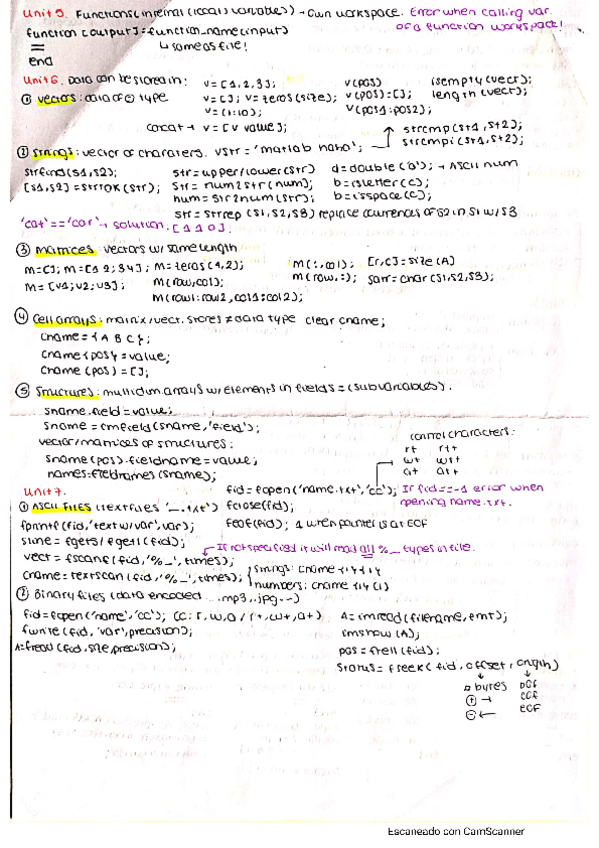 Unit 5. Functions (internal (local) variables) → own workspace. Error when calling var. of a function workspace!
function [output] = function_name(input)
↳ same as file!
end
Unit 6. Data can be stored in:
① vectors: data of ① type
v = [1,2,3];
v = []; v = zeros(size);
v = (1:10);
concat → v = [v value];
v(pos)
v(pos) = [];
v(pos1:pos2);
isempty(vect);
length(vect);
② Strings: vector of characters. vstr = 'matlab haha';
strcmp(st1,st2);
strcmpi(st1,st2);
strfind(s1,s2);
[s1,s2] = strtok(str);
str = upper/lower(str)
str = num2str(num);
num = str2num(str);
d = double('b'); → ASCII num
b = isletter(c);
b = isspace(c);
str = strrep(s1,s2,s3) replace ocurrences of s2 in s1 w/ s3
'cat' == 'car' → solution: [1 1 0].
③ Matrices: vectors w/ same length
m = []; m = [1 2; 3 4]; m = zeros(1,2);
m = [v1; v2; v3];
m(row,col);
m(row1:row2, col1:col2);
m(:,col);
m(row,:);
[r,c] = size(A)
sarr = char(s1,s2,s3);
④ Cell arrays: matrix/vect. stores ≠ data type clear cname;
cname = { A B C };
cname{pos} = value;
cname(pos) = [];
⑤ Structures: multidim. arrays w/ elements in fields = (subvariables).
sname.field = value;
sname = rmfield(sname,'field');
vector/matrices of structures:
sname(pos).fieldname = value;
names = fieldnames(sname);
control characters:
rt rt+
wt wt+
at at+
Unit 7.
① ASCII FILES (textfiles '_.txt')
fid = fopen('name.txt','cc'); If fid == -1 error when opening name.txt.
fclose(fid);
fprintf(fid,'text w/ var',var);
feof(fid); 1 when pointer is at EOF
sline = fgets/fgetl(fid);
vect = fscanf(fid,'%_',times);
↳ If not specified it will read all %_ types in file.
cname = textscan(fid,'%_',times);
strings: cname{1}{1}
numbers: cname{1}(1)
② Binary files (data encoded .mp3, .jpg...)
fid = fopen('name','cc'); cc: r, w, a / r+, w+, a+)
fwrite(fid,'var',precision);
A = fread(fid,size,precision);
A = imread(filename,fmt);
imshow(A);
pos = ftell(fid);
status = fseek(fid, offset, origin)
n bytes
⊕ →
⊖ ←
BOF
COF
EOF
Escaneado con CamScanner